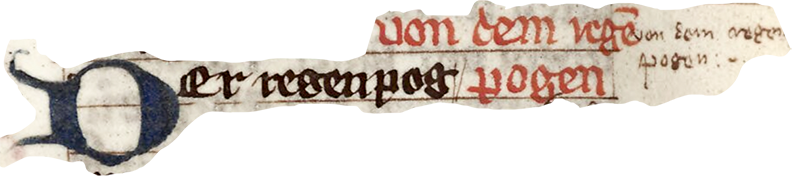 von dem regē
Der regenpog pogen
von dem regen
pogen